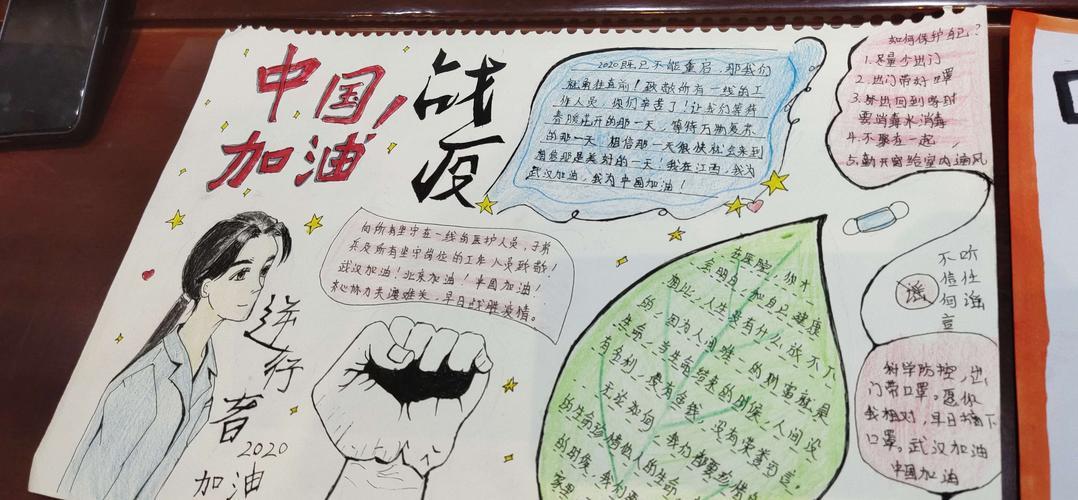 中国
加油
战
疫
2020既已不能重启,那我们
就勇往直前!致敬所有一线的工
作人员,你们辛苦了!让我们等待
春暖花开的那一天,等待万物复苏
的那一天 相信那一天很快就会来到
相信那是美好的一天!我在江西,我为
武汉加油,我为中国加油!
如何保护自己?
1.尽量少出门
2.出门带好口罩
3.外出回到家时
要消毒水消毒
4.不聚在一起,
5.勤开窗给室内通风
向所有坚守在一线的医护人员,子弟
兵及所有坚守岗位的工作人员致敬!
武汉加油!北京加油!中国加油!
齐心协力共渡难关,早日战胜疫情。
逆行者
2020
加油
在医院,你才
会明白,和自己健康
相比,人生没有什么放不下
的,因为人间唯一的财富就是
生命,当生命结束的时候,人间没
有名利,没有金钱,没有荣誉可言。
无论如何,我们都要珍惜自
的生命珍惜他人的生命,
的困境,我们要
家里
不听
信任
何谣
言
谣
科学防控,出
门带口罩。愿你
我相对,早日摘下
口罩。武汉加油
中国加油